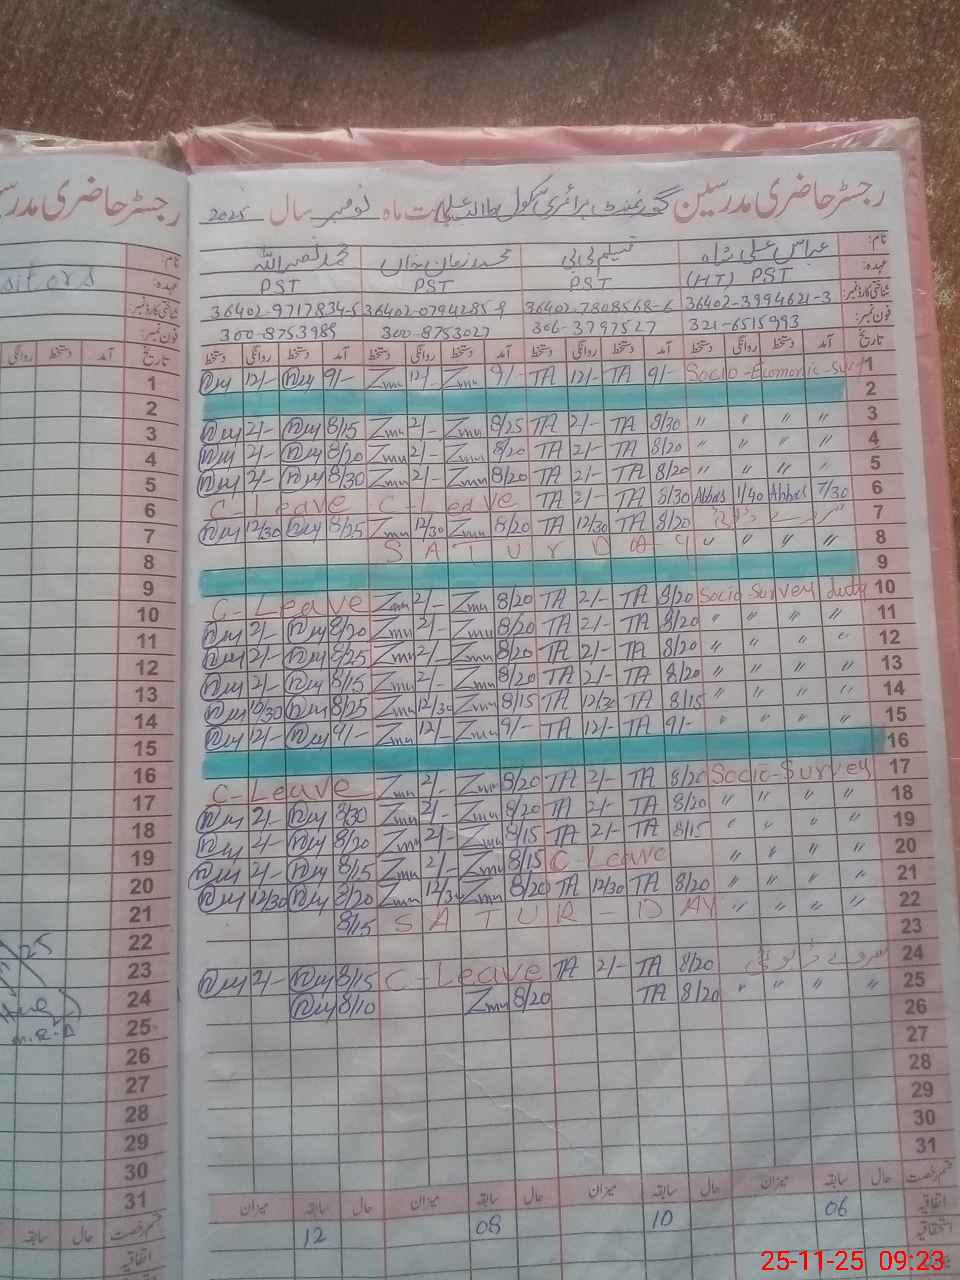 رجسٹر حاضری مدرسین گورنمنٹ پرائمری سکول بابت ماہ نومبر سال 2025
نام: عباس علی شاہ نسیم بی بی محمد زمان خاں محمد نصر اللہ
عہدہ: (HT) PST PST PST PST
شناختی کارڈ نمبر: 36402-3994621-3 36402-7808568-6 36402-0794285-9 36402-9717834-5
فون نمبر: 321-6515993 306-3797527 300-8753027 300-8753989
تاریخ آمد دستخط روانگی دستخط آمد دستخط روانگی دستخط آمد دستخط روانگی دستخط آمد دستخط روانگی دستخط
12/- 9/- Zmn 12/- Zmn 9/- TA 12/- TA 9/- Socio-Economic-Surv 1
2
2/- 8/15 Zmn 2/- Zmn 8/25 TA 2/- TA 8/30 " " " " 3
2/- 8/20 Zmn 2/- Zmn 8/20 TA 2/- TA 8/20 " " " " 4
2/- 8/30 Zmn 2/- Zmn 8/20 TA 2/- TA 8/20 " " " " 5
C-Leave C-Leave TA 2/- TA 8/30 Abbas 1/40 Abbas 7/30 6
12/30 8/25 Zmn 12/30 Zmn 8/20 TA 12/30 TA 8/20 سروے ڈیوٹی 7
SATURDAY " " " " 8
9
C-Leave Zmn 2/- Zmn 8/20 TA 2/- TA 8/20 Socio-Survey duty 10
2/- 8/20 Zmn 2/- Zmn 8/20 TA 2/- TA 8/20 " " " " 11
2/- 8/25 Zmn 2/- Zmn 8/20 TA 2/- TA 8/20 " " " " 12
2/- 8/15 Zmn 2/- Zmn 8/20 TA 2/- TA 8/20 " " " " 13
8/25 Zmn 12/30 Zmn 8/15 TA 12/30 TA 8/15 " " " " 14
12/- 9/- Zmn 12/- Zmn 9/- TA 12/- TA 9/- " " " " 15
16
C-Leave Zmn 2/- Zmn 8/20 TA 2/- TA 8/20 Socio-Survey 17
2/- 8/30 Zmn 2/- Zmn 8/20 TA 2/- TA 8/20 " " " " 18
2/- 8/20 Zmn 2/- Zmn 8/15 TA 2/- TA 8/15 " " " " 19
2/- 8/15 Zmn 2/- Zmn 8/15 C-Leave " " " " 20
12/30 8/20 Zmn 12/30 Zmn 8/20 TA 12/30 TA 8/20 " " " " 21
8/15 SATUR-DAY " " " " 22
23
2/- 8/15 C-Leave TA 2/- TA 8/20 سروے ڈیوٹی 24
8/10 Zmn 8/20 TA 8/20 " " " " 25
26
27
28
29
30
31
قسم رخصت حال سابقہ میزان حال سابقہ میزان حال سابقہ میزان حال سابقہ میزان
اتفاقیہ 06 10 08 12
استحقاقیہ
رجسٹر حاضری مدرسین
نام:
عہدہ: sitors
شناختی کارڈ نمبر:
فون نمبر:
تاریخ آمد دستخط روانگی
1
2
3
4
5
6
7
8
9
10
11
12
13
14
15
16
17
18
19
20
21
22
23
24
25
26
27
28
29
30
31
قسم رخصت حال سابقہ
اتفاقیہ
25-11-25 09:23